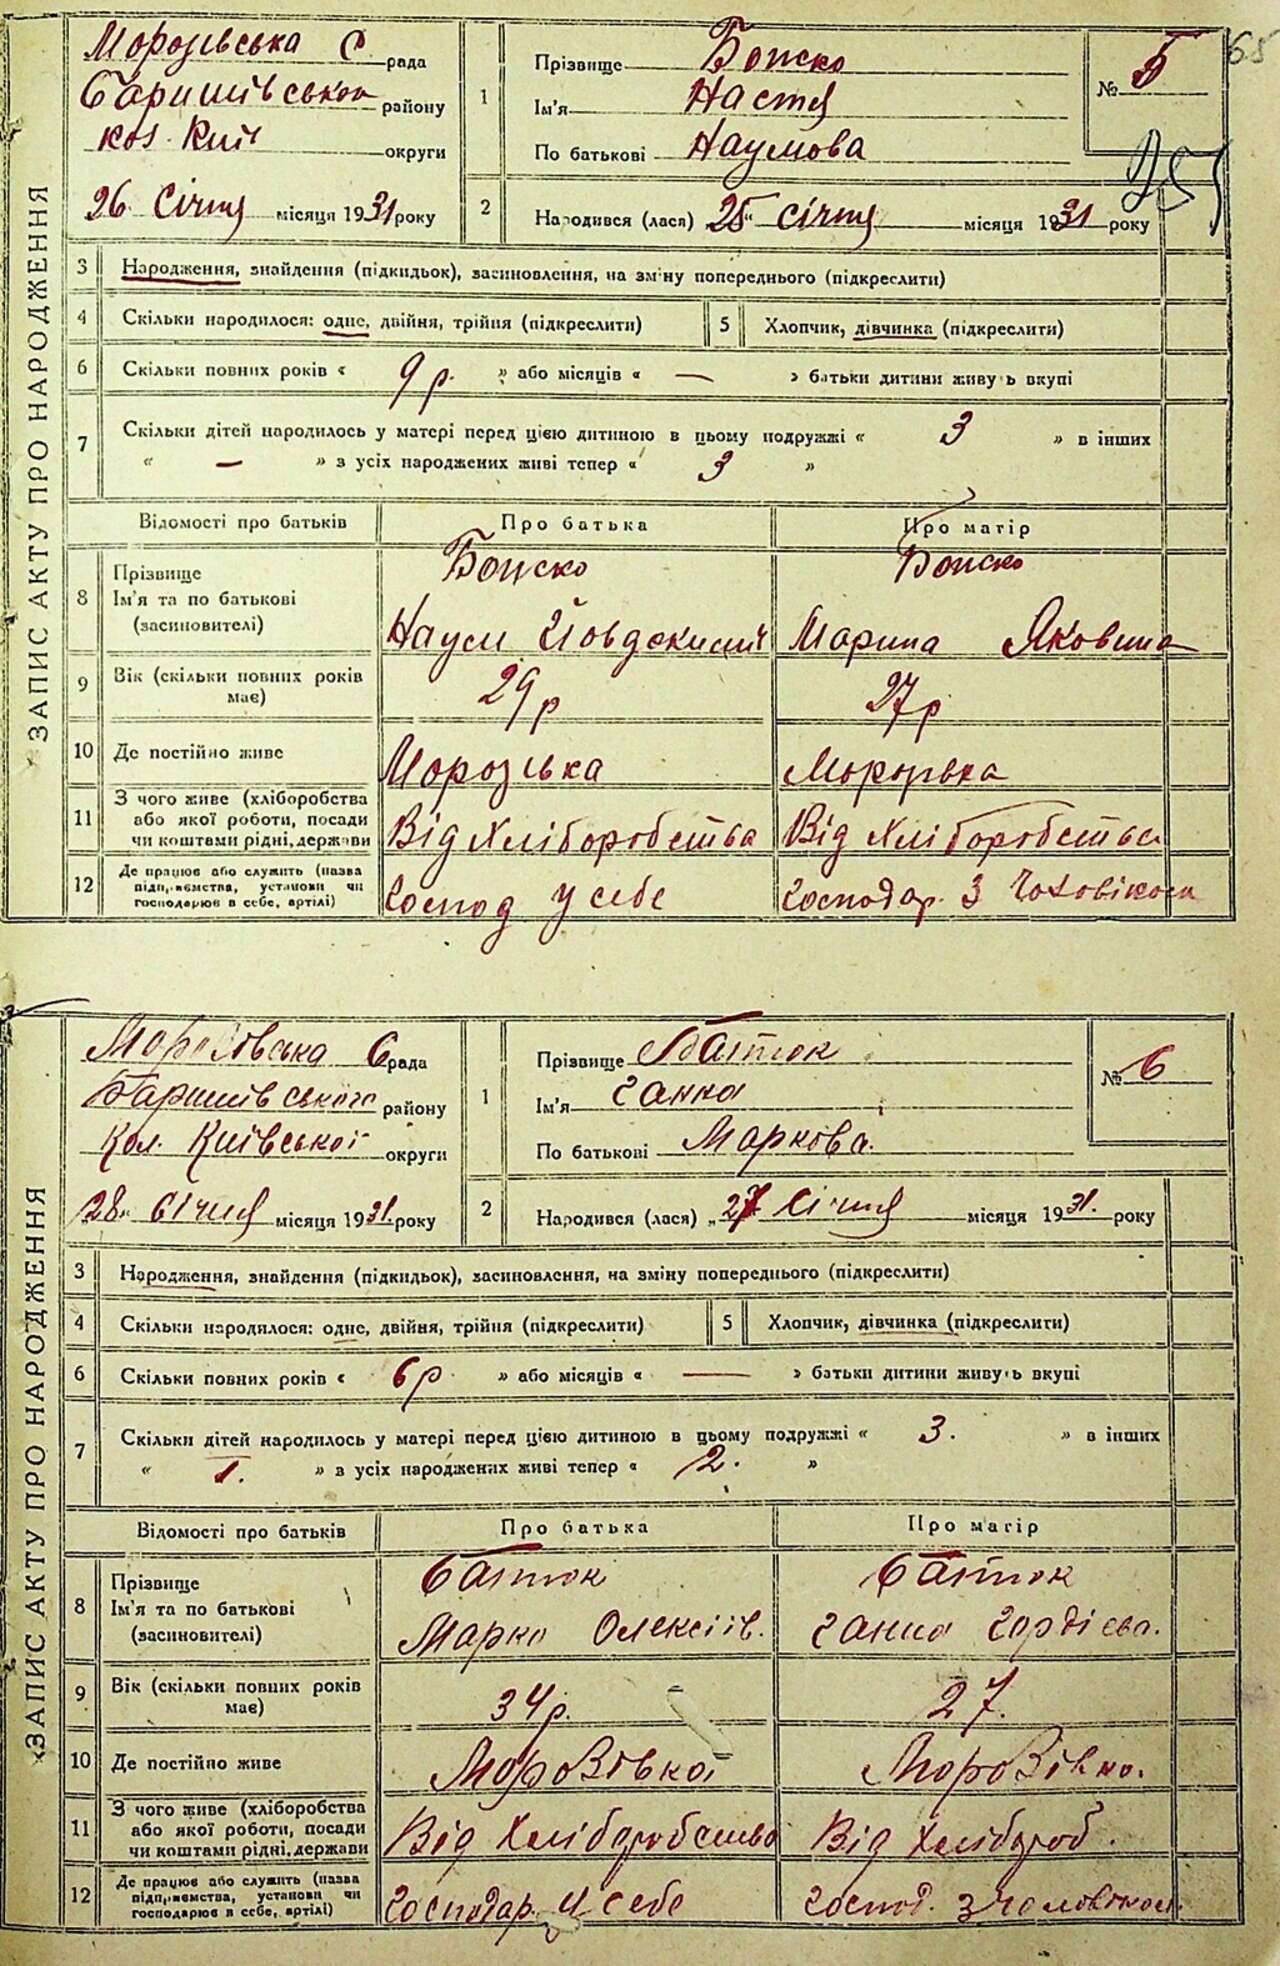 65
ЗАПИС АКТУ ПРО НАРОДЖЕННЯ
Морозівська С рада
Баришівського району
кол. Київ округи
26 Січня місяця 1931 року
1
Прізвище
Ім'я Настя
По батькові Наумова
№ 5
251
2
Народився (лася) „25“ січня місяця 1931 року
3 Народження, знайдення (підкидьок), засиновлення, на зміну попереднього (підкреслити)
4 Скільки народилося: одне, двійня, трійня (підкреслити)
5 Хлопчик, дівчинка (підкреслити)
6 Скільки повних років « 9 р. » або місяців « — » батьки дитини живуть вкупі
7 Скільки дітей народилось у матері перед цією дитиною в цьому подружжі « 3 » в інших
« — » з усіх народжених живі тепер « 3 »
Відомості про батьків Про батька Про матір
8 Прізвище
Ім'я та по батькові
(засиновителі)
Наум
Марина Яковина
9 Вік (скільки повних років
має)
29 р
27 р
10 Де постійно живе
Морозівка
Морозівка
11 З чого живе (хліборобства
або якої роботи, посади
чи коштами рідні, держави
Від Хліборобства
Від Хліборобства
12 Де працює або служить (назва
підприємства, установи чи
господарює в себе, артілі)
Господ у себе
господар. З Чоловіком
ЗАПИС АКТУ ПРО НАРОДЖЕННЯ
Морозівська С рада
Баришівського району
Кол. Київської округи
28 січня місяця 1931. року
1
Прізвище Батюк
Ім'я Ганна
По батькові Маркова.
№ 6
2
Народився (лася) „27 Січня місяця 1931. року
3 Народження, знайдення (підкидьок), засиновлення, на зміну попереднього (підкреслити)
4 Скільки народилося: одне, двійня, трійня (підкреслити)
5 Хлопчик, дівчинка (підкреслити)
6 Скільки повних років « 6 р » або місяців « — » батьки дитини живуть вкупі
7 Скільки дітей народилось у матері перед цією дитиною в цьому подружжі « 3. » в інших
« 1. » з усіх народжених живі тепер « 2. »
Відомості про батьків Про батька Про матір
8 Прізвище
Ім'я та по батькові
(засиновителі)
Батюк
Марко Олексіїв.
Батюк
Ганна Гордієва.
9 Вік (скільки повних років
має)
34 р.
27.
10 Де постійно живе
Морозівка
Морозівка.
11 З чого живе (хліборобства
або якої роботи, посади
чи коштами рідні, держави
Від Хліборобства
Від Хлібороб.
12 Де працює або служить (назва
підприємства, установи чи
господарює в себе, артілі)
Господар. у себе
Господ. з чоловіком.